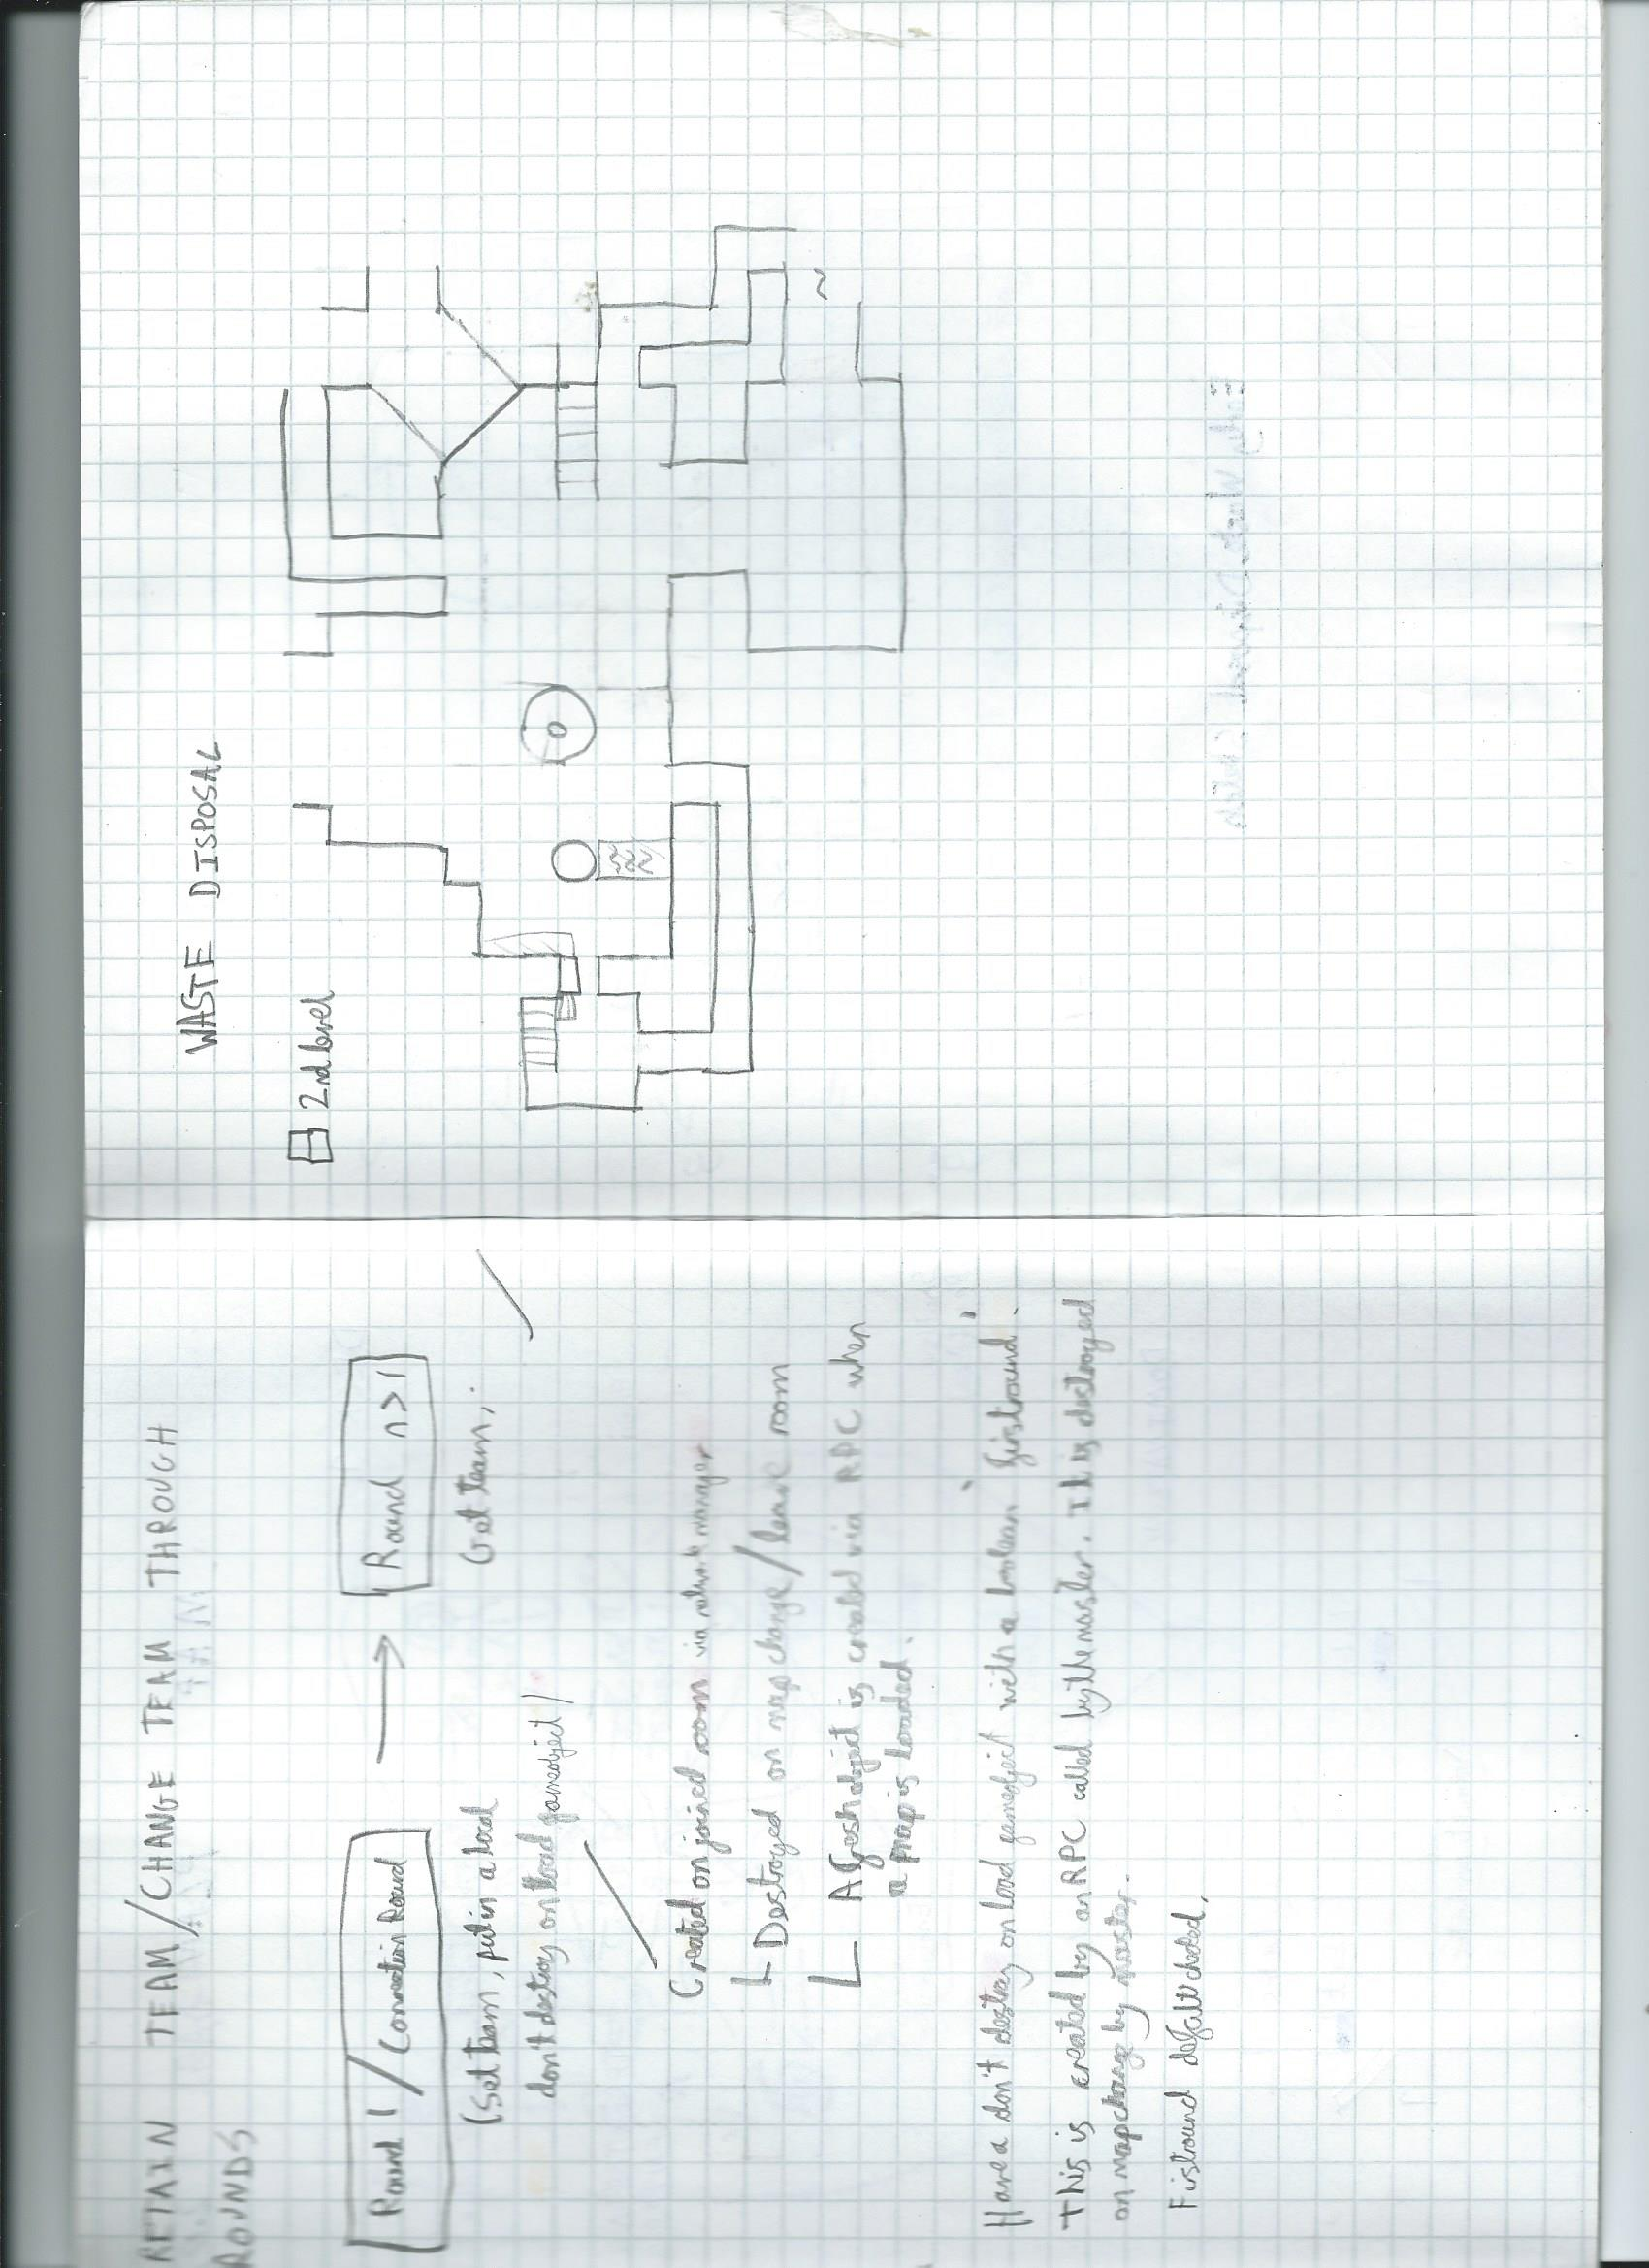 RETAIN TEAM/CHANGE TEAM THROUGH
ROUNDS
Round 1/Connection Round
Round n>1
(Set team, put in a local
don't destroy on load gameobject)
Get team;
Created on joined room via network manager
Destroyed on map change/leave room
A fresh object is created via RPC when
a map is loaded.
Have a don't destroy on load gameobject with a boolean 'firstround'.
This is created by an RPC called by the master. It is destroyed
on mapchange by master.
Firstround default checked.
WASTE DISPOSAL
2nd level